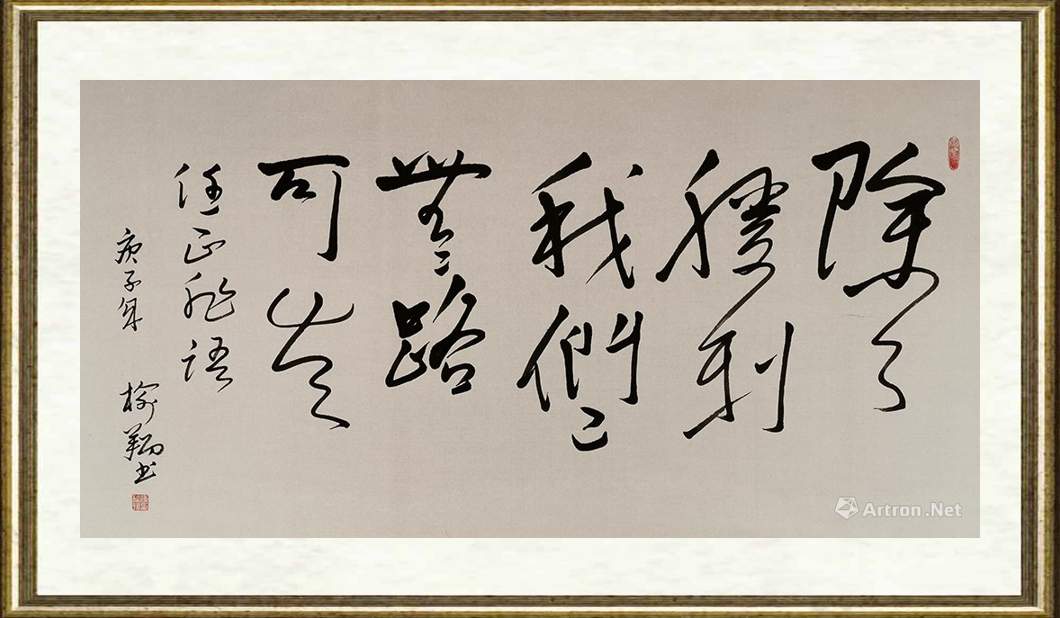 除了
勝利
我們已
無路
可走
任正非語
庚子年 榆翔書
Artron.Net